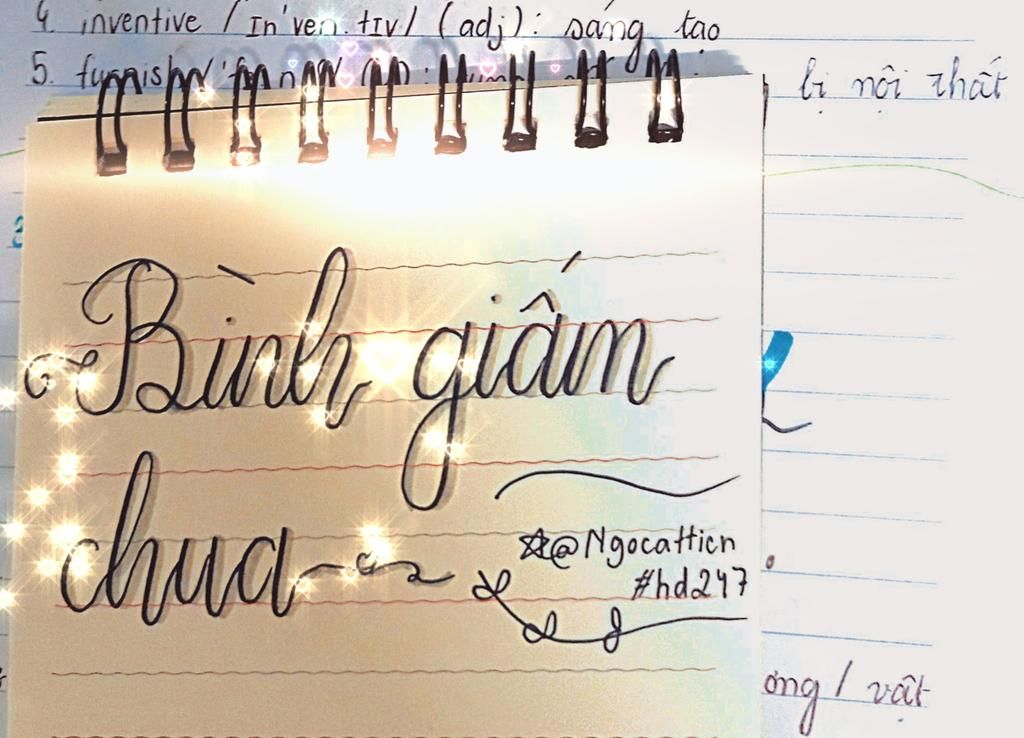 4. inventive / In'ven.tIv/ (adj): sáng tạo
5. furnish bị nội thất
Bình giấm
chua
@Ngocattien
#hd247
ơng / vật